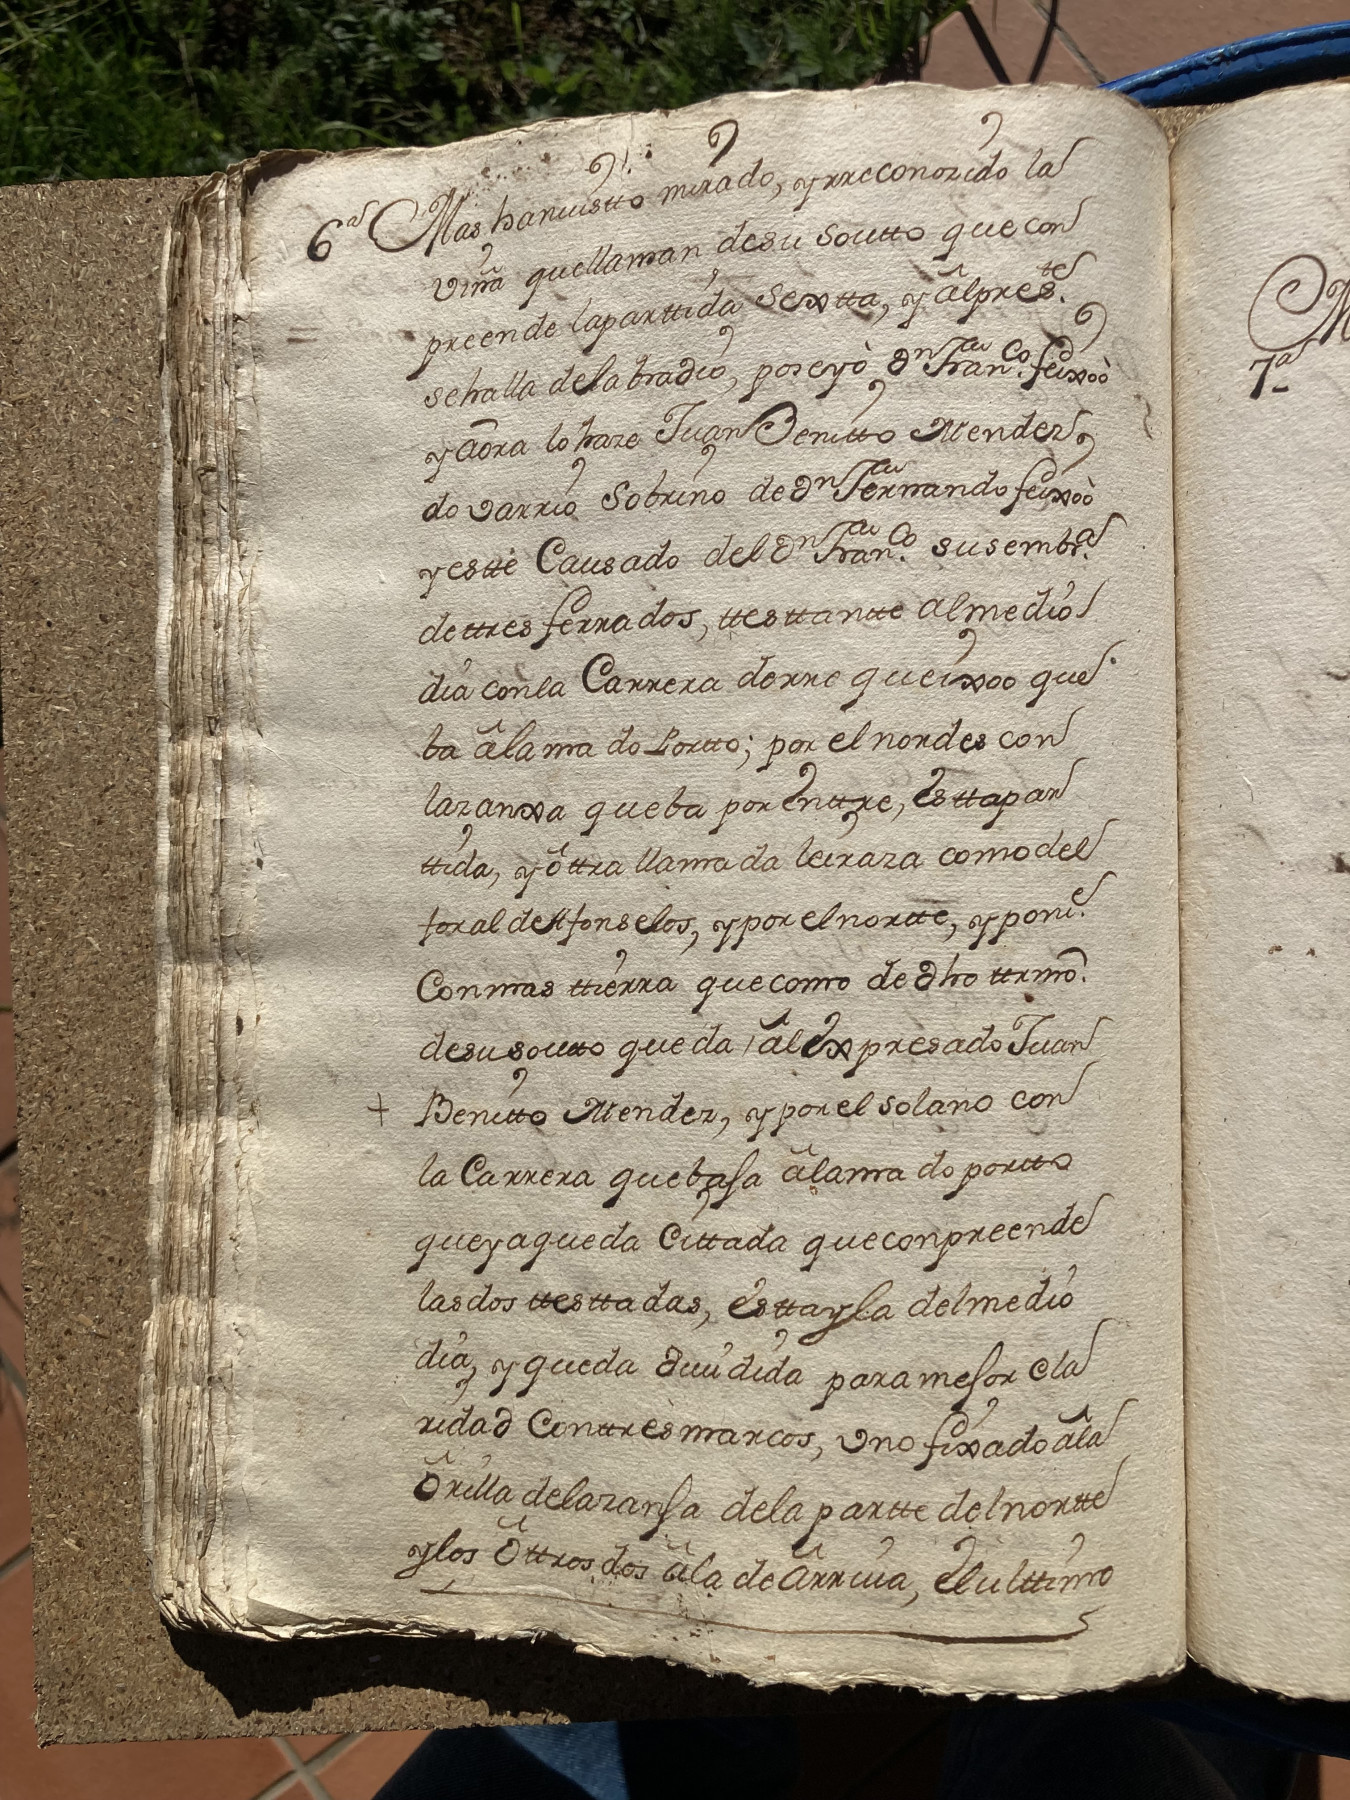 6ª Mas hanvistto mirado, yrreconozido la
viña quellaman desu soutto quecon
preende lapartida sextta, y âlpres.te
sehalla delabradio, poseyò Dn Fran.co feixoò
y aôra lo haze Juan Benitto Mendez,
do varrio sobrino de Dn Fernando feixoò
yestte Causado del Dn Fran.co susembr.a
dettres ferrados, ttesttantte almedio
dia conla Carrera derre queixoo que
ba âlama do Portto; por el nordes con
lazanxa queba por enttre, esttapar
ttida, y ôttra llamada leiraza comodel
foral deAfonselos, yporelnortte, y poni.e
Conmas ttierra quecomo de dho ttrmo.
desusoutto queda âlexpresado Juan
+ Benitto Mendez, yporelsolano con
la Carrera quebasa âlama do portto
queyaqueda Cittada queconpreende
lasdos ttesttadas, esttayla delmedio
dia, y queda diuidida paramejor cla
ridad Conttrès marcos, vno fixado âla
ôrilla delazanja dela partte delnortte
ylos ôttros dos âla deârriua, elulttimo
7ª